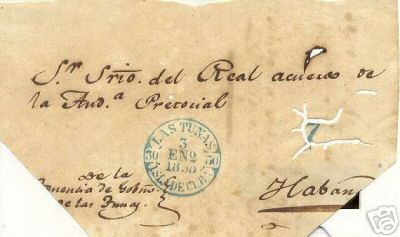 Sr. Srio. del Real acuerdo de
la Aud.a Pretorial
LAS TUNAS
30 3 30
ENO
ISLA DE CUBA
De la
Tenencia de Gobno
de las Tunas
Habana